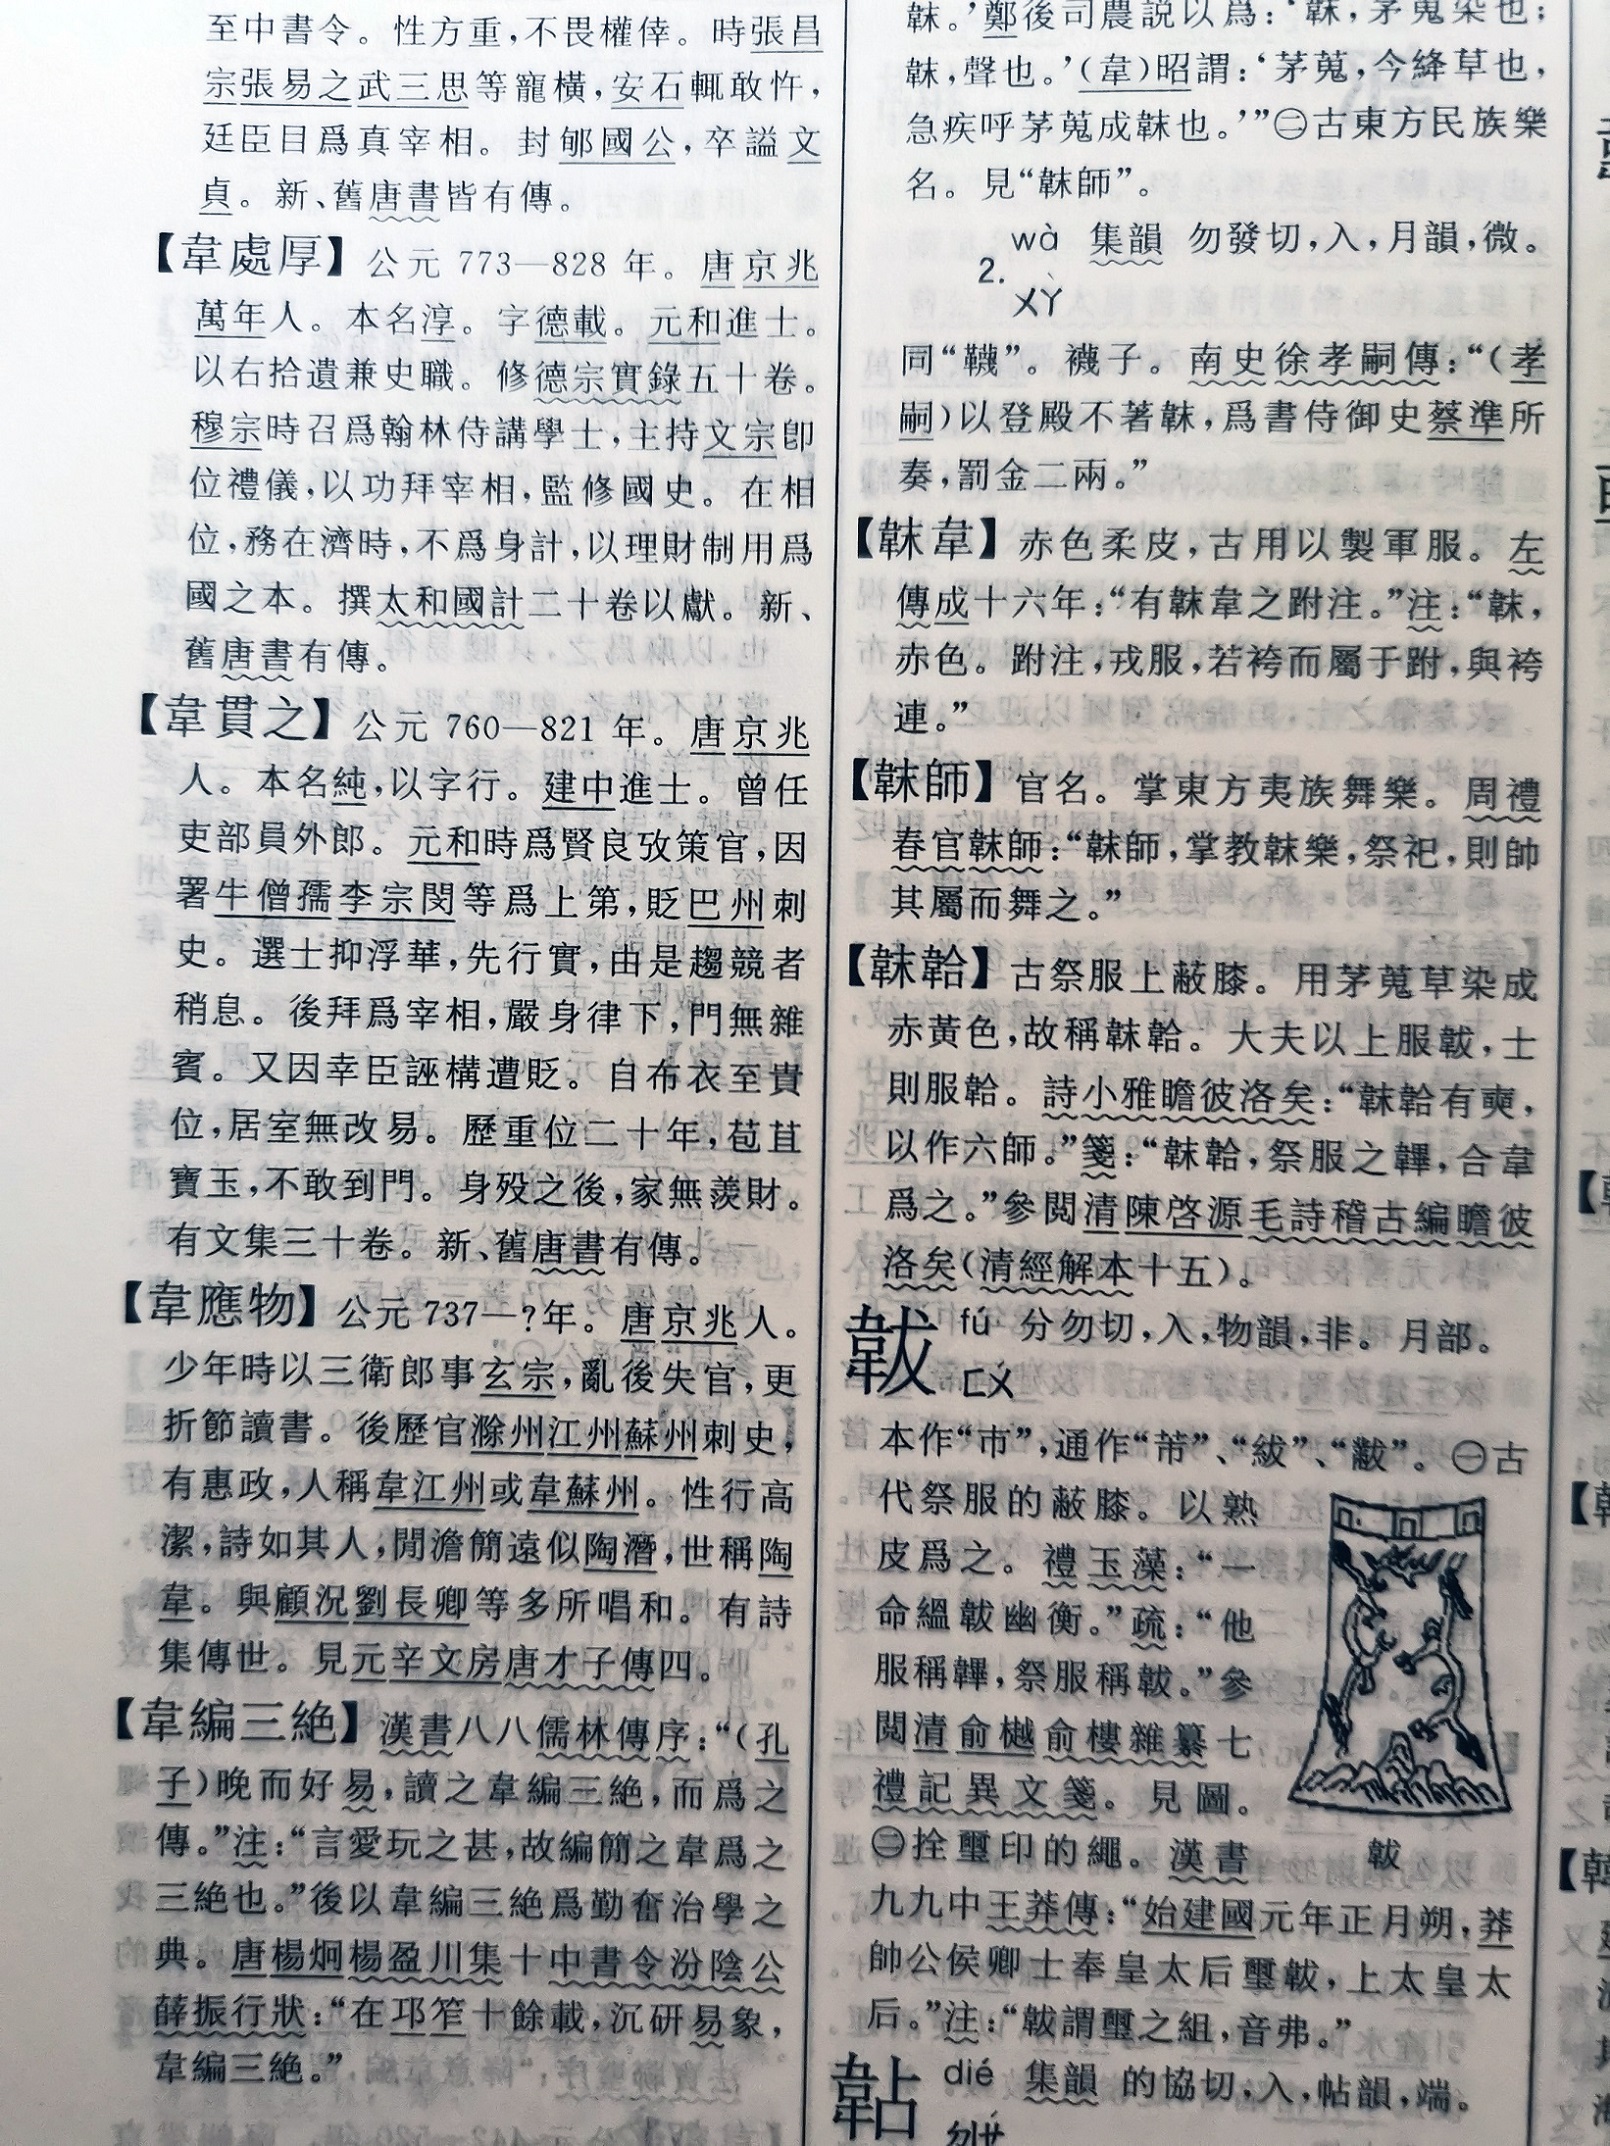 至中書令。性方重,不畏權倖。時張昌
宗張易之武三思等寵橫,安石輒敢忤,
廷臣目爲真宰相。封郇國公,卒謚文
貞。新、舊唐書皆有傳。
【韋處厚】公元 773—828 年。唐京兆
萬年人。本名淳。字德載。元和進士。
以右拾遺兼史職。修德宗實錄五十卷。
穆宗時召爲翰林侍講學士,主持文宗卽
位禮儀,以功拜宰相,監修國史。在相
位,務在濟時,不爲身計,以理財制用爲
國之本。撰太和國計二十卷以獻。新、
舊唐書有傳。
【韋貫之】公元 760—821 年。唐京兆
人。本名純,以字行。建中進士。曾任
吏部員外郎。元和時爲賢良攷策官,因
署牛僧孺李宗閔等爲上第,貶巴州刺
史。選士抑浮華,先行實,由是趨競者
稍息。後拜爲宰相,嚴身律下,門無雜
賓。又因幸臣誣構遭貶。自布衣至貴
位,居室無改易。歷重位二十年,苞苴
寶玉,不敢到門。身歿之後,家無羨財。
有文集三十卷。新、舊唐書有傳。
【韋應物】公元 737—?年。唐京兆人。
少年時以三衛郎事玄宗,亂後失官,更
折節讀書。後歷官滁州江州蘇州刺史,
有惠政,人稱韋江州或韋蘇州。性行高
潔,詩如其人,閒澹簡遠似陶潛,世稱陶
韋。與顧況劉長卿等多所唱和。有詩
集傳世。見元辛文房唐才子傳四。
【韋編三絕】漢書八八儒林傳序:“(孔
子)晚而好易,讀之韋編三絕,而爲之
傳。”注:“言愛玩之甚,故編簡之韋爲之
三絕也。”後以韋編三絕爲勤奮治學之
典。唐楊炯楊盈川集十中書令汾陰公
薛振行狀:“在邛笮十餘載,沉研易象,
韋編三絕。”
韎。’鄭後司農説以爲:‘韎,茅蒐染也;
韎,聲也。’(韋)昭謂:‘茅蒐,今絳草也,
急疾呼茅蒐成韎也。’”㊁古東方民族樂
名。見“韎師”。
2. wà 集韻 勿發切,入,月韻,微。
ㄨㄚˋ
同“韈”。襪子。南史徐孝嗣傳:“(孝
嗣)以登殿不著韎,爲書侍御史蔡準所
奏,罰金二兩。”
【韎韋】赤色柔皮,古用以製軍服。左
傳成十六年:“有韎韋之跗注。”注:“韎,
赤色。跗注,戎服,若袴而屬于跗,與袴
連。”
【韎師】官名。掌東方夷族舞樂。周禮
春官韎師:“韎師,掌教韎樂,祭祀,則帥
其屬而舞之。”
【韎韐】古祭服上蔽膝。用茅蒐草染成
赤黃色,故稱韎韐。大夫以上服韍,士
則服韐。詩小雅瞻彼洛矣:“韎韐有奭,
以作六師。”箋:“韎韐,祭服之韠,合韋
爲之。”參閱清陳啓源毛詩稽古編瞻彼
洛矣(清經解本十五)。
韍 fú 分勿切,入,物韻,非。月部。
ㄈㄨˊ
本作“巿”,通作“芾”、“紱”、“黻”。㊀古
代祭服的蔽膝。以熟
皮爲之。禮玉藻:“一
命縕韍幽衡。”疏:“他
服稱韠,祭服稱韍。”參
閱清俞樾俞樓雜纂七
禮記異文箋。見圖。
㊁拴璽印的繩。漢書
韍
九九中王莽傳:“始建國元年正月朔,莽
帥公侯卿士奉皇太后璽韍,上太皇太
后。”注:“韍謂璽之組,音弗。”
䩞 dié 集韻 的協切,入,帖韻,端。